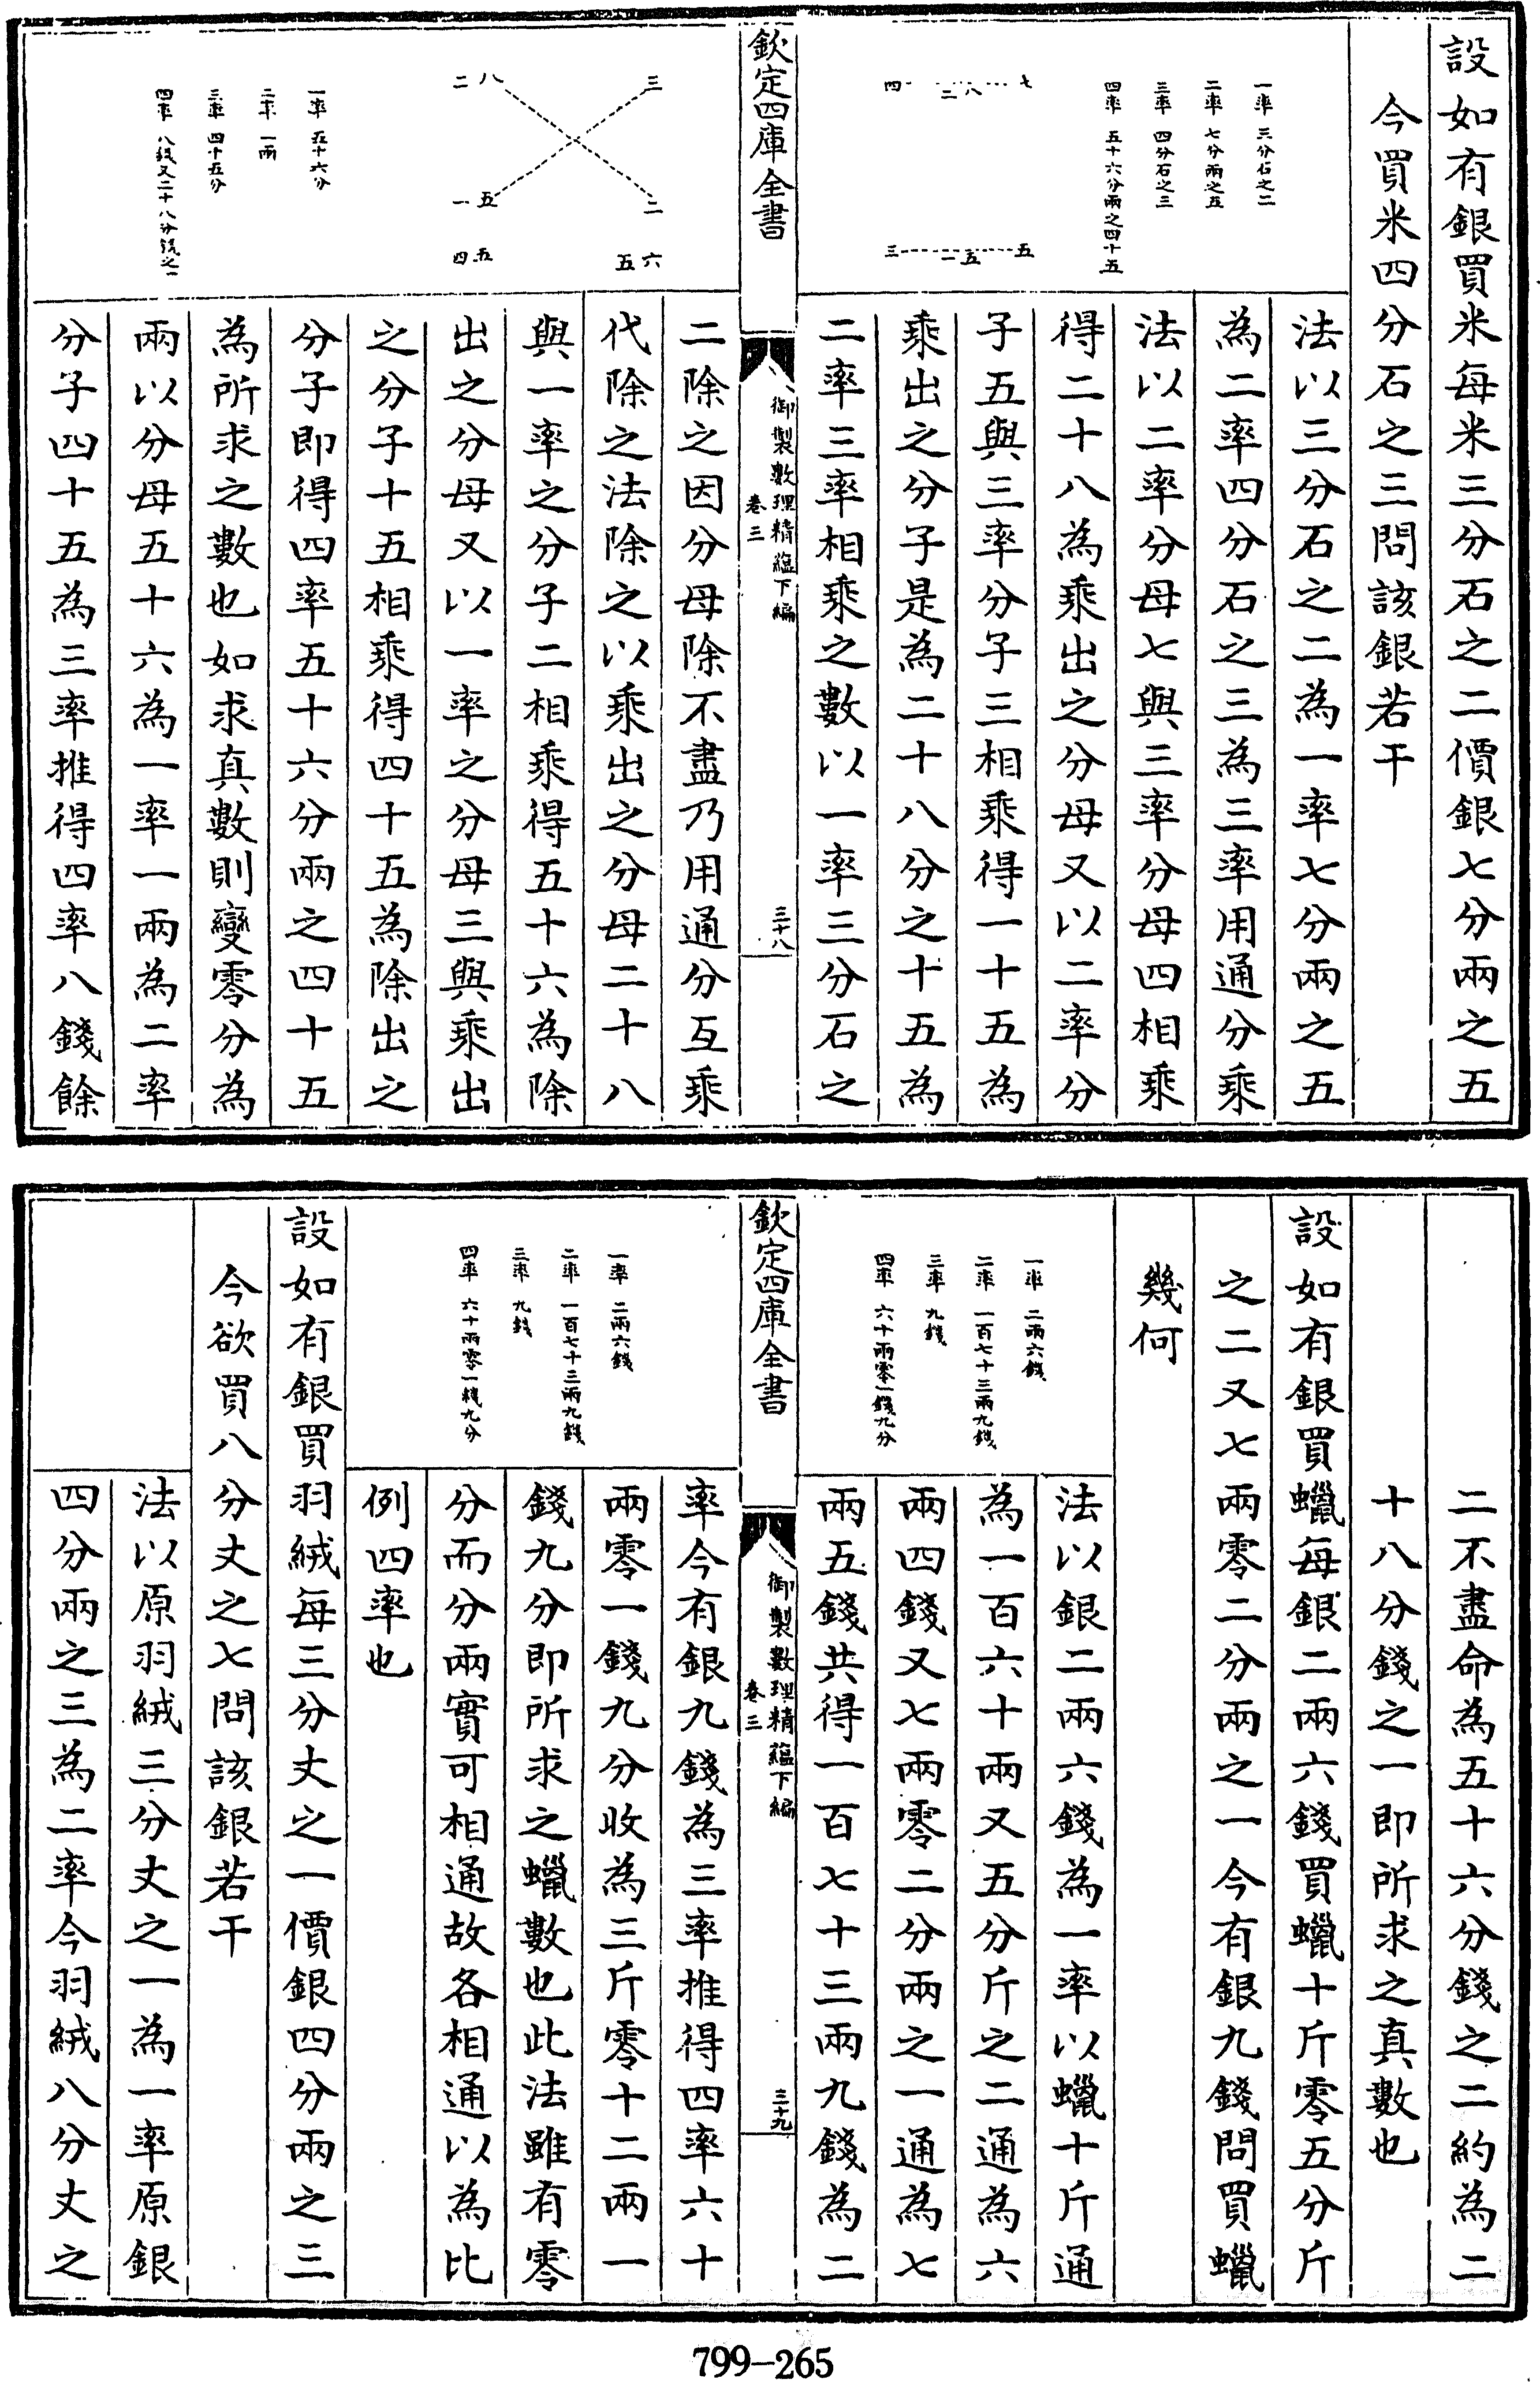 設如有銀買米每米三分石之二價銀七分兩之五
今買米四分石之三問該銀若干
一率 三分石之二
二率 七分兩之五
三率 四分石之三
四率 五十六分兩之四十五
七 二八 四
五 一五 三
法以三分石之二為一率七分兩之五
為二率四分石之三為三率用通分乘
法以二率分母七與三率分母四相乘
得二十八為乘出之分母又以二率分
子五與三率分子三相乘得一十五為
乘出之分子是為二十八分之十五為
二率三率相乘之數以一率三分石之
欽定四庫全書
御製數理精蘊下編
卷三
三十八
三 二八
二 一五
五六 四五
一率 五十六分
二率 一兩
三率 四十五分
四率 八錢又二十八分錢之一
二除之因分母除不盡乃用通分互乘
代除之法除之以乘出之分母二十八
與一率之分子二相乘得五十六為除
出之分母又以一率之分母三與乘出
之分子十五相乘得四十五為除出之
分子即得四率五十六分兩之四十五
為所求之數也如求真數則變零分為
兩以分母五十六為一率一兩為二率
分子四十五為三率推得四率八錢餘
二不盡命為五十六分錢之二約為二
十八分錢之一即所求之真數也
設如有銀買蠟每銀二兩六錢買蠟十斤零五分斤
之二又七兩零二分兩之一今有銀九錢問買蠟
幾何
一率 二兩六錢
二率 一百七十三兩九錢
三率 九錢
四率 六十兩零一錢九分
法以銀二兩六錢為一率以蠟十斤通
為一百六十兩又五分斤之二通為六
兩四錢又七兩零二分兩之一通為七
兩五錢共得一百七十三兩九錢為二
欽定四庫全書
御製數理精蘊下編
卷三
三十九
一率 二兩六錢
二率 一百七十三兩九錢
三率 九錢
四率 六十兩零一錢九分
率今有銀九錢為三率推得四率六十
兩零一錢九分收為三斤零十二兩一
錢九分即所求之蠟數也此法雖有零
分而分兩實可相通故各相通以為比
例四率也
設如有銀買羽絨每三分丈之一價銀四分兩之三
今欲買八分丈之七問該銀若干
法以原羽絨三分丈之一為一率原銀
四分兩之三為二率今羽絨八分丈之
799-265